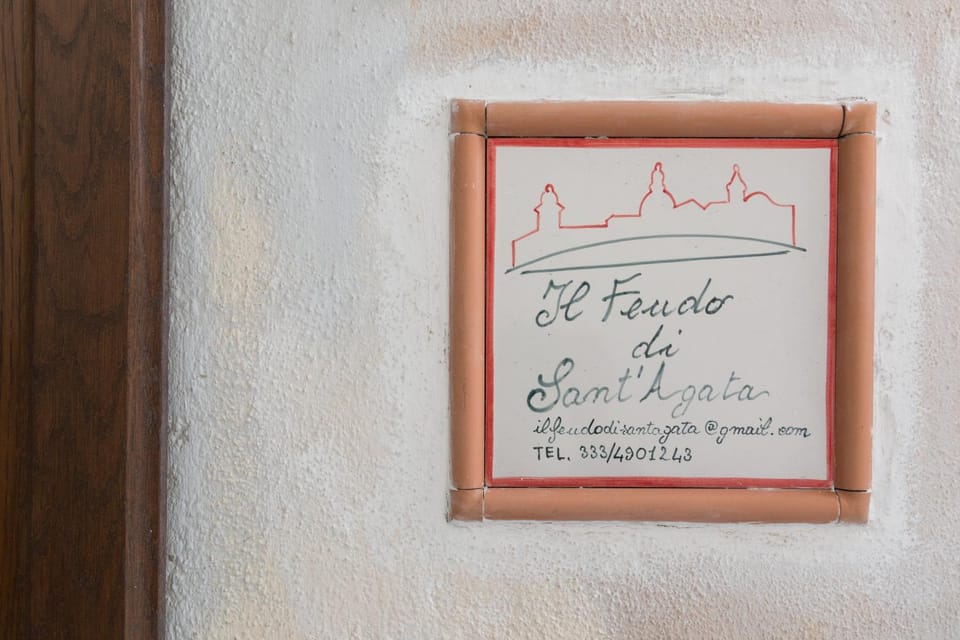 Il Feudo
di
Sant'Agata
ilfeudodisantagata@gmail.com
TEL. 333/4901243